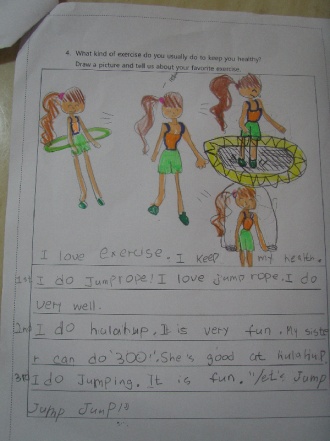 4. What kind of exercise do you usually do to keep you healthy?
Draw a picture and tell us about your favorite exercise.
I love exercise. I keep my health.
1st I do Jumprope! I love jump rope. I do
very well.
2nd I do hulahup. It is very fun. My siste
r can do '300'. She's good at hulahup
3rd I do Jumping. It is fun. "let's Jump
Jump Jump!"